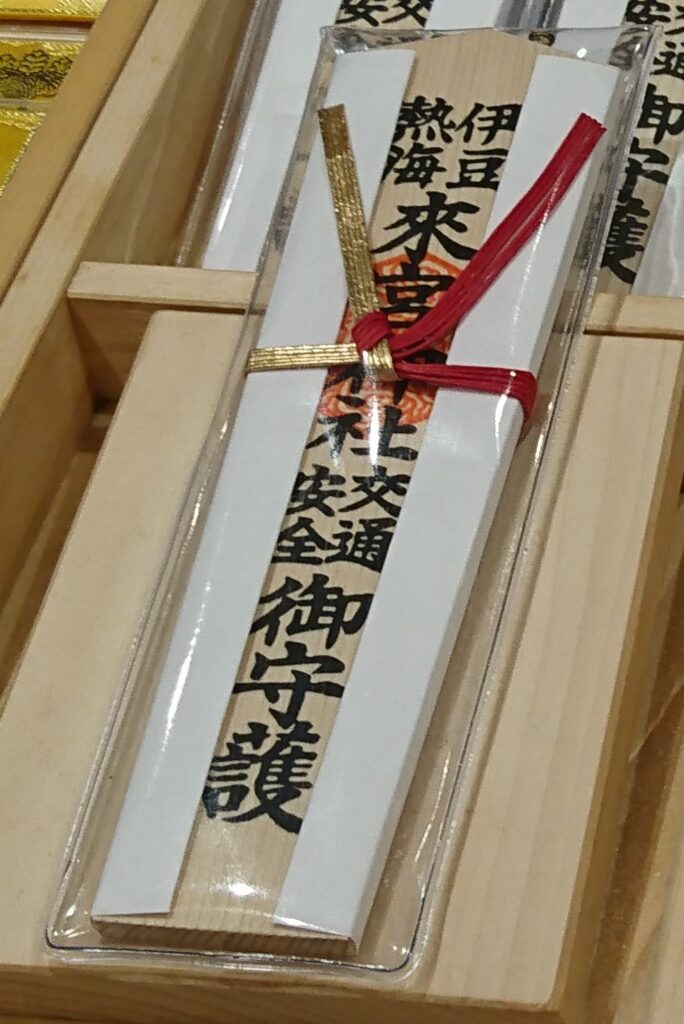 伊豆
熱海
來宮神社
交通
安全
御守護
交通
安全
交通
安全
御守護